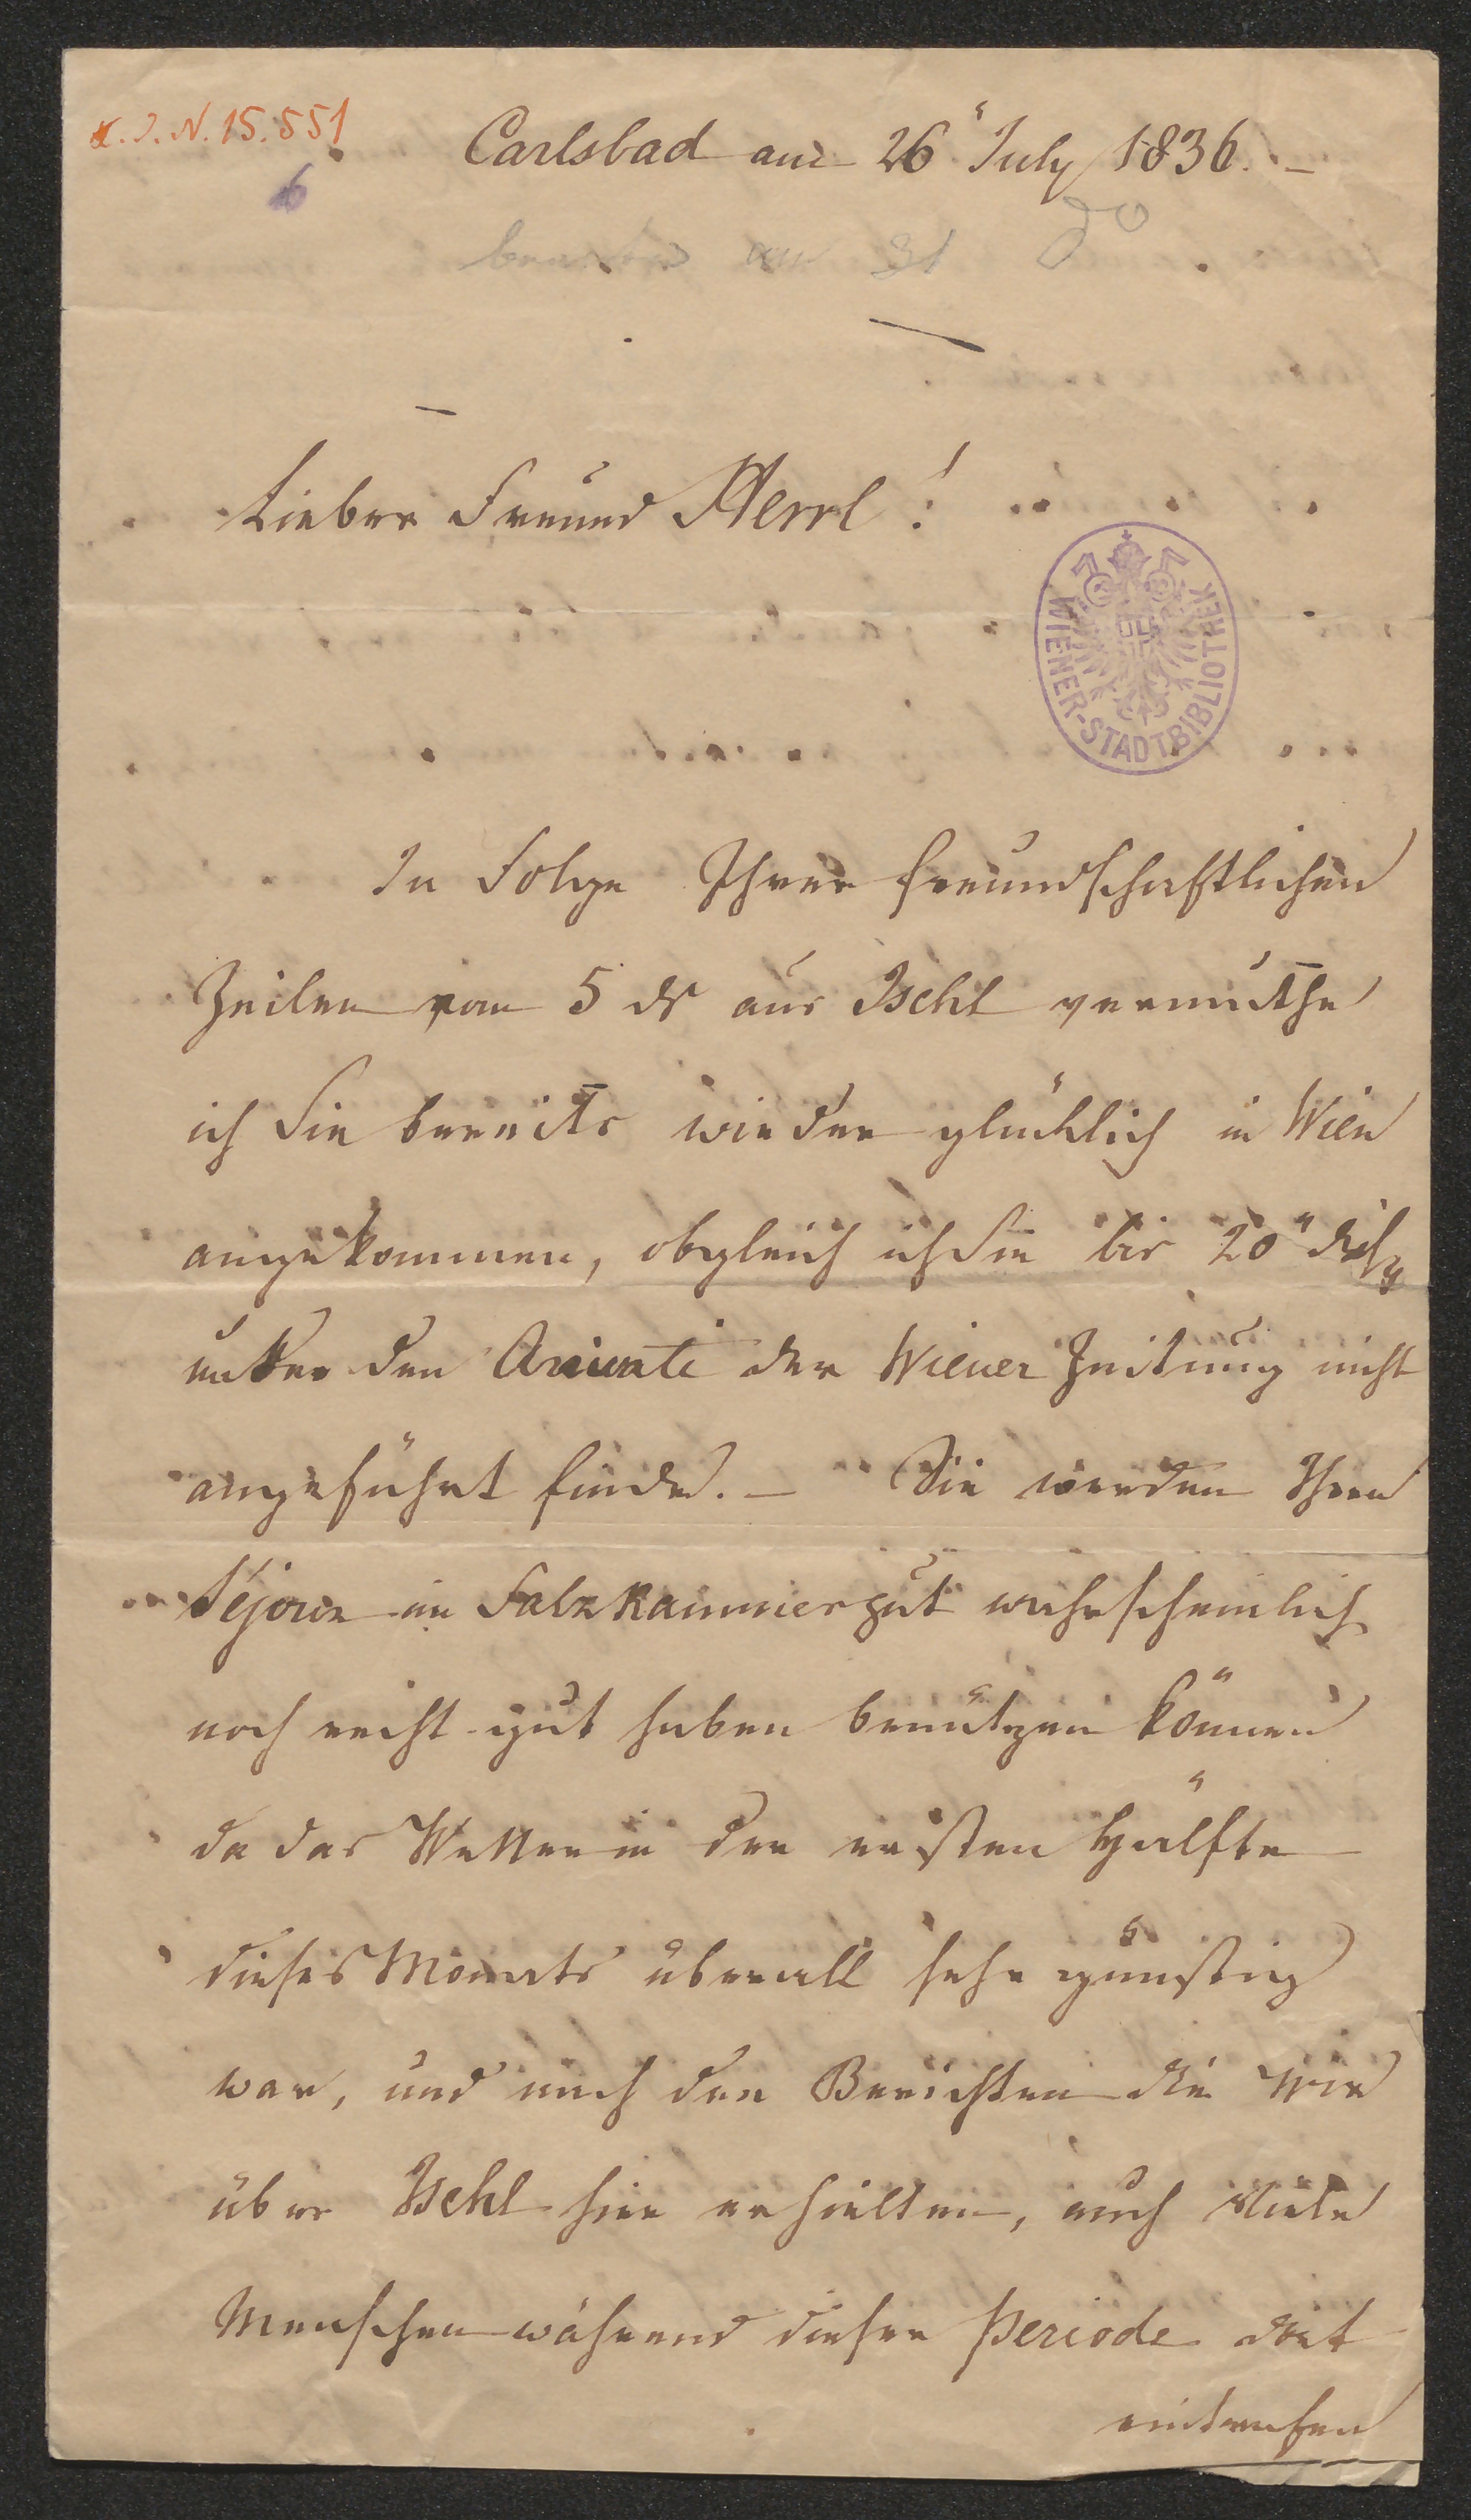 I.N. 15.551
6
Carlsbad am 26" July 1836. –
beantw am 31 do
Lieber Freund Herrl!
WIENER-STADTBIBLIOTHEK
In Folge Ihrer freundschaftlichen
Zeilen vom 5 ds aus Ischl vermuthe
ich Sie bereits wieder glücklich in Wien
angekommen, obgleich ich Sie bis 20"
unter den Arivati der Wiener Zeitung nicht
angeführt finde. – Sie werden Ihren
Séjour im Salzkammergut wahrscheinlich
noch recht gut haben benützen können
da das Wetter in der ersten Hälfte
dieses Monats überall sehr günstig
war, und nach den Berichten die wir
über Ischl hier erhielten, auch viele
Menschen während dieser Periode dort
eintrafen